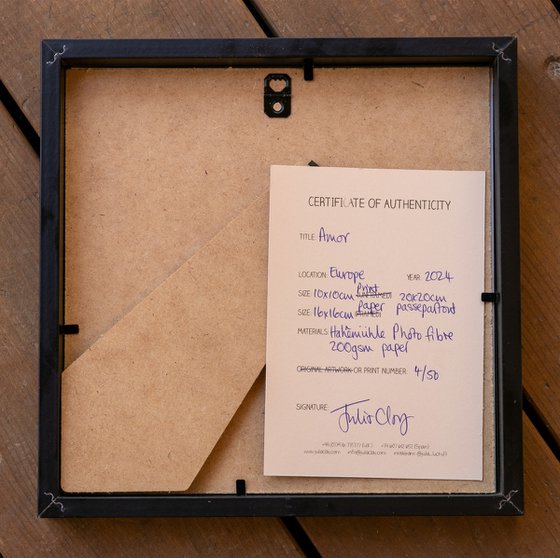 CERTIFICATE OF AUTHENTICITY
TITLE: Amor
LOCATION: Europe YEAR: 2024
SIZE 10x10cm Print (UNFRAMED) 20x20cm
SIZE 16x16cm Paper (FRAMED) passepartout
MATERIALS: Hahemühle Photo fibre
200gsm paper
ORIGINAL ARTWORK OR PRINT NUMBER: 4/50
SIGNATURE: